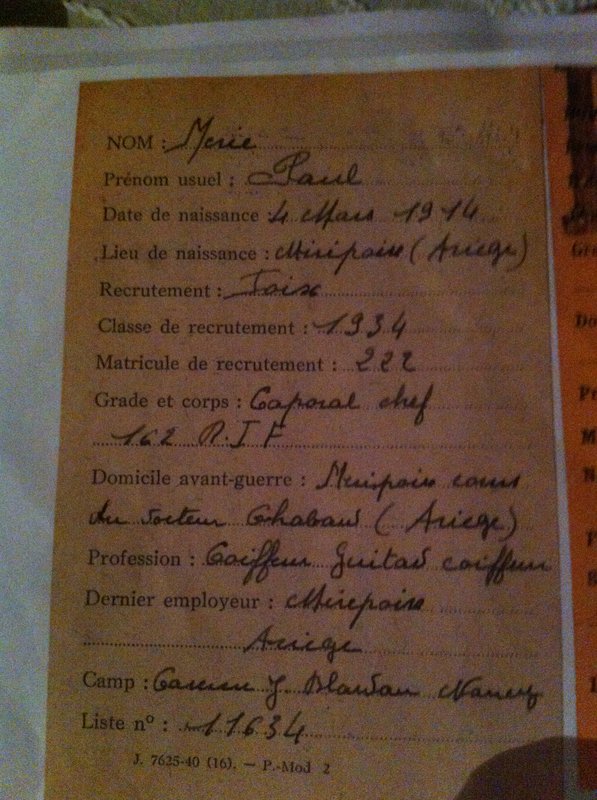 NOM : Merie
Prénom usuel : Paul
Date de naissance : 4 Mars 1914
Lieu de naissance : Miripoix (Ariege)
Recrutement : Foix
Classe de recrutement : 1934
Matricule de recrutement : 222
Grade et corps : Caporal chef
162 R.I F
Domicile avant-guerre : Meripoix cours
du docteur Chabaud (Ariege)
Profession : Coiffeur Guitad coiffeur
Dernier employeur : Mirepoix
Ariege
Camp : Caserne J Blandan Nancy
Liste nº : 11634
J. 7625-40 (16). — P.-Mod 2